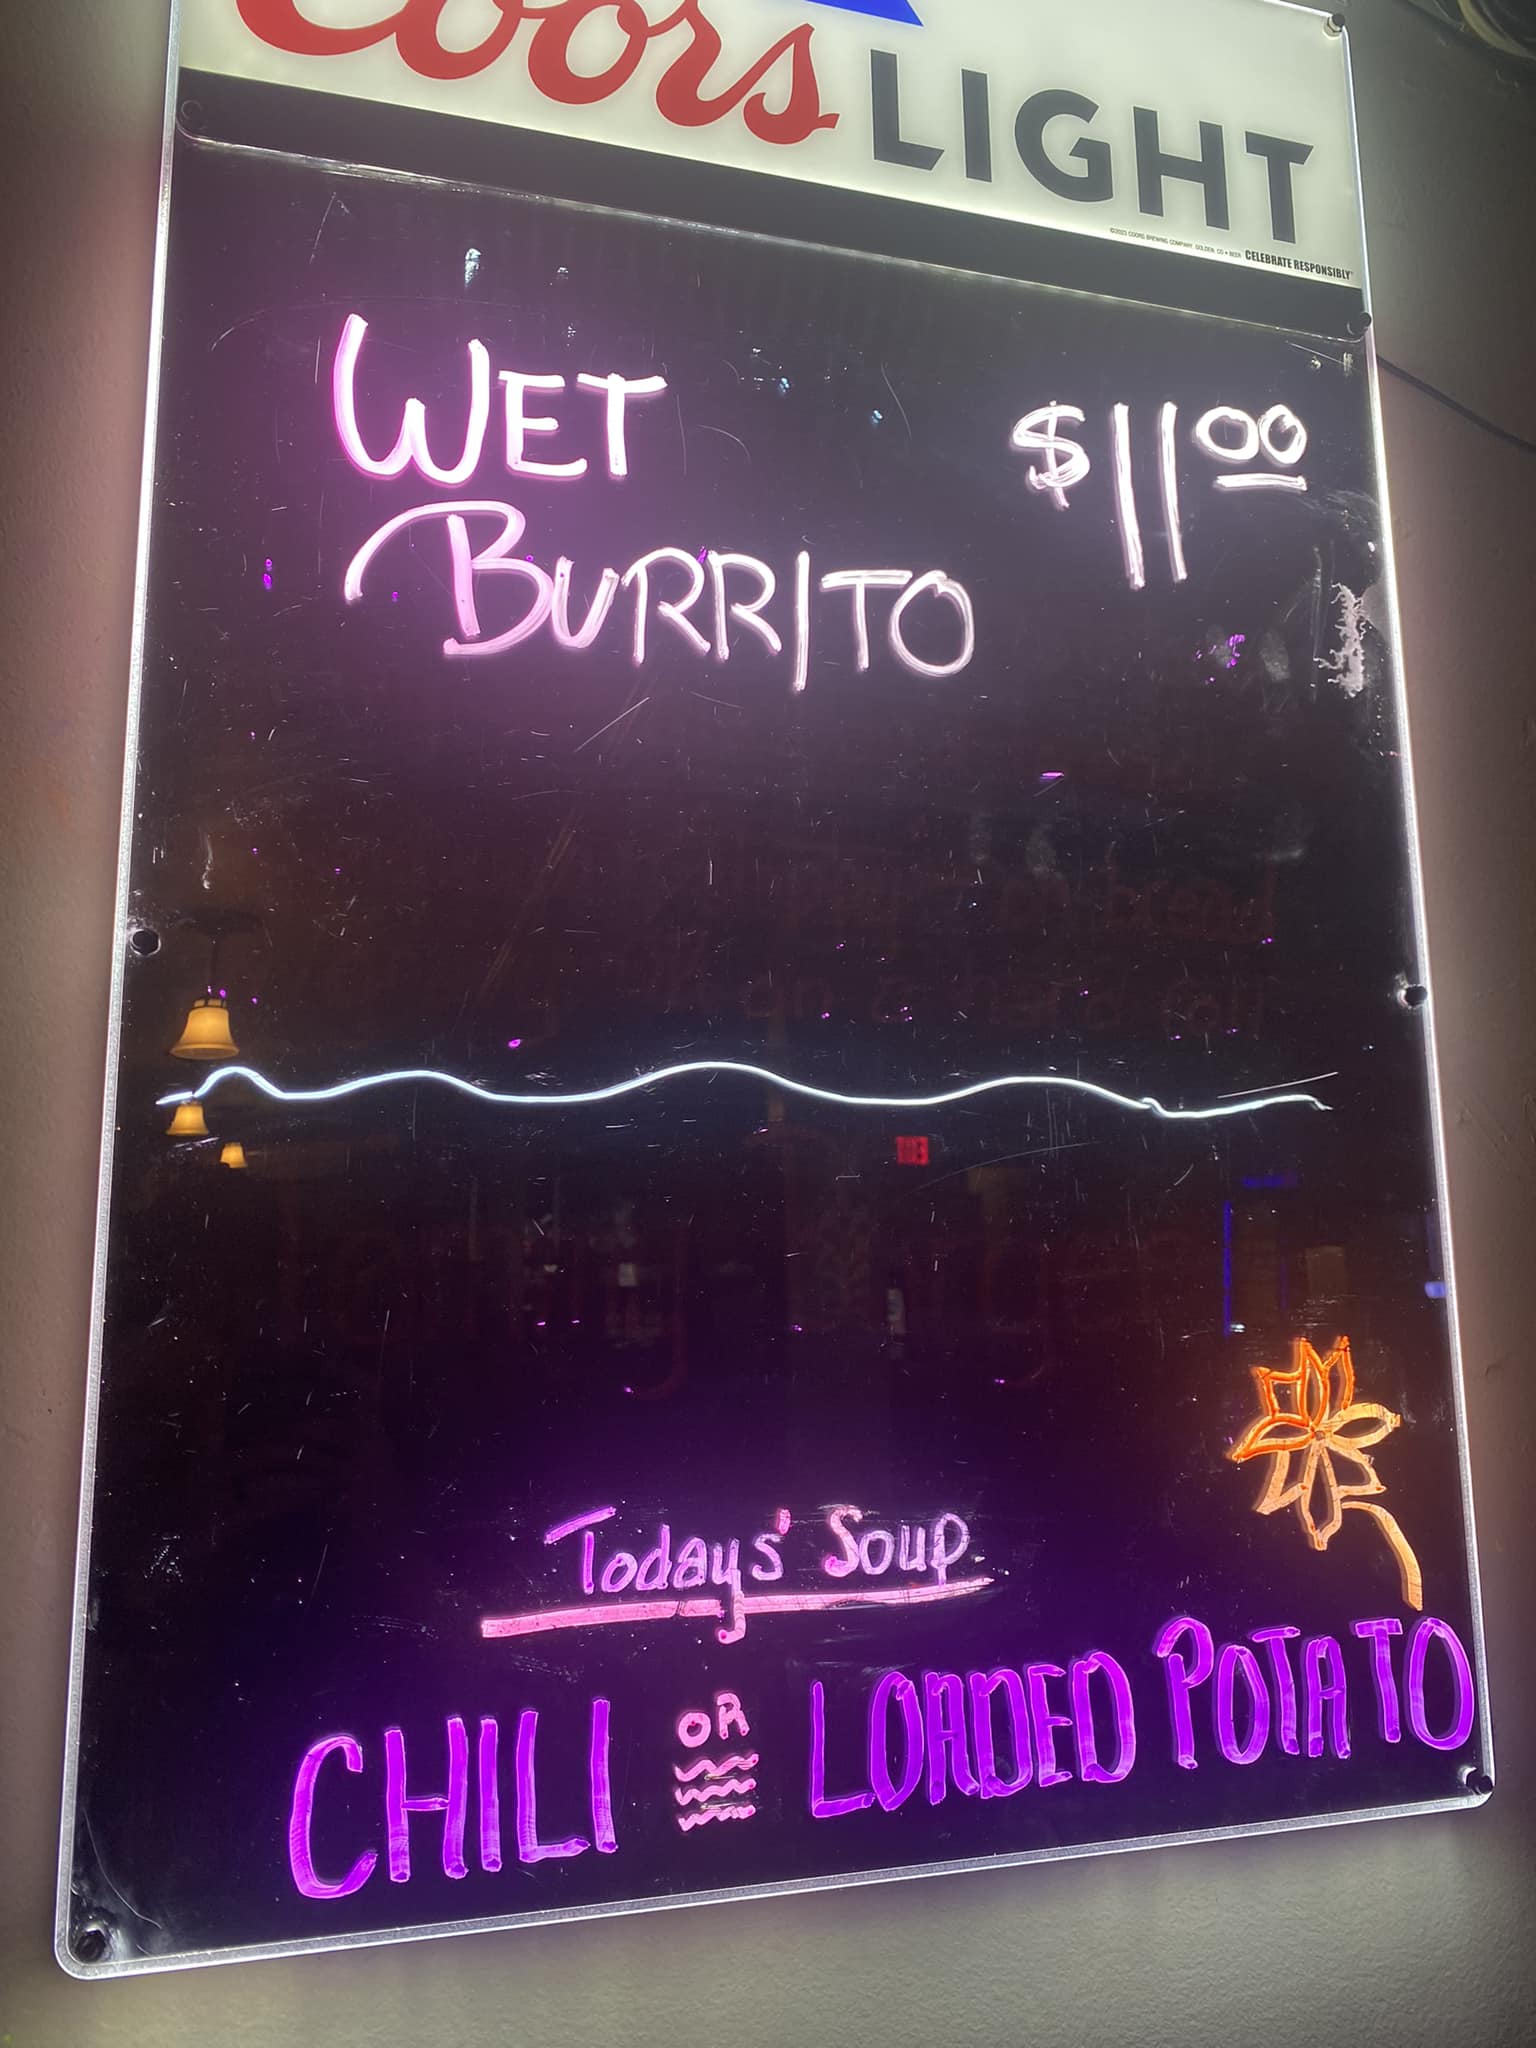 Coors LIGHT
©2021 COORS BREWING COMPANY, GOLDEN, CO • BEER CELEBRATE RESPONSIBLY®
WET $11.00
BURRITO
Todays' Soup
CHILI OR LOADED POTATO